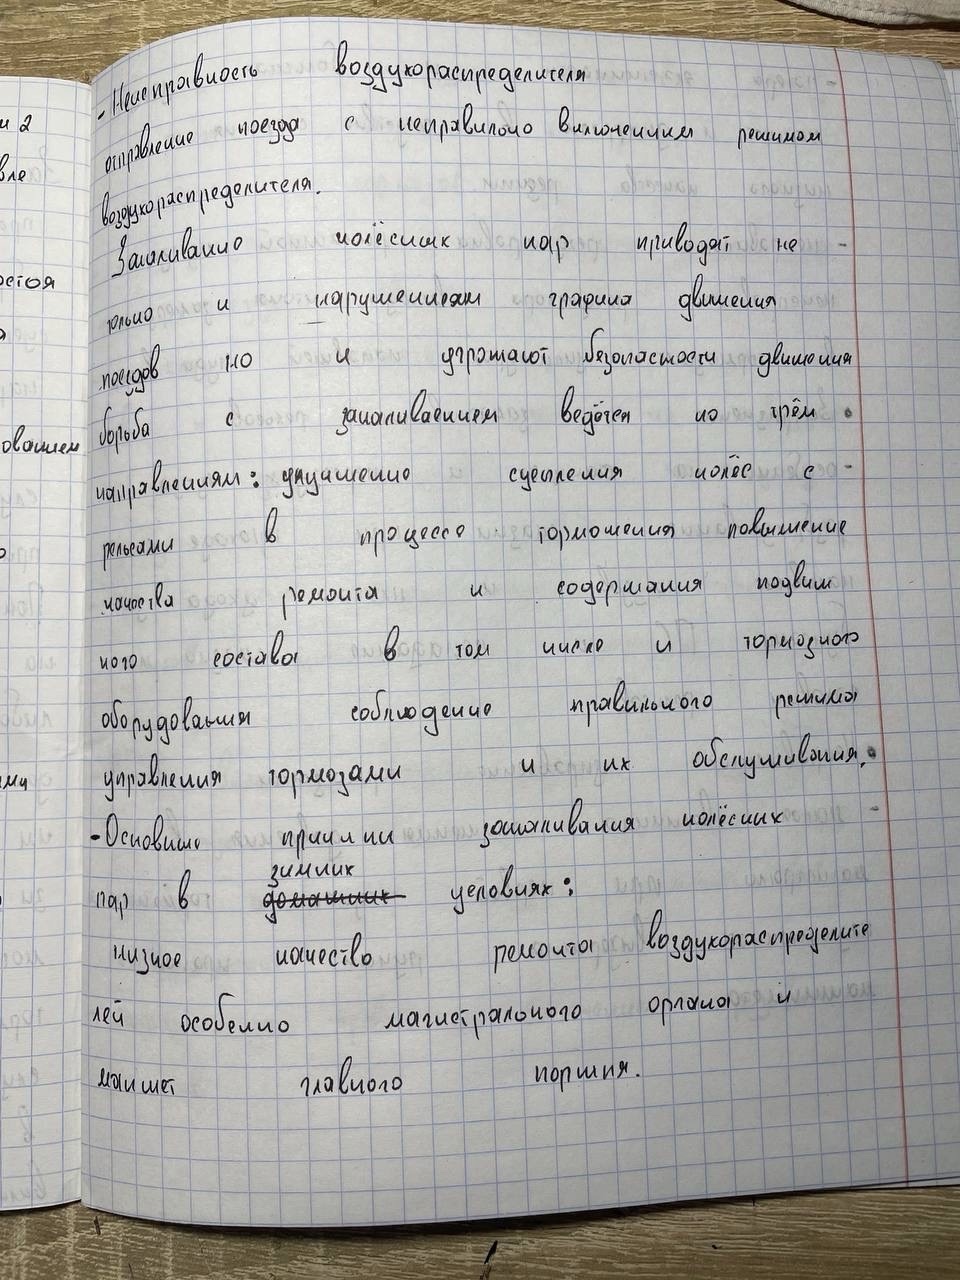 - Неисправность воздухораспределителя
отправление поезда с неправильно включенным режимом
воздухораспределителя.
Заклинивание колёсных пар приводят не -
только и нарушениям графика движения
поездов но и угрожают безопасности движения
борьба с заклиниванием ведётся по трём
направлениям: улучшение сцепления колёс с -
рельсами в процессе торможения повышение
качества ремонта и содержания подвиж
ного состава в том числе и тормозного
оборудования соблюдение правильного режима
управления тормозами и их обслуживания.
- Основные причины заклинивания колёсных -
пар в зимних условиях:
низкое качество ремонта воздухораспределите
лей особенно магистрального органа и
манжет главного поршня.
и 2
вле
остоя
ованием
ами